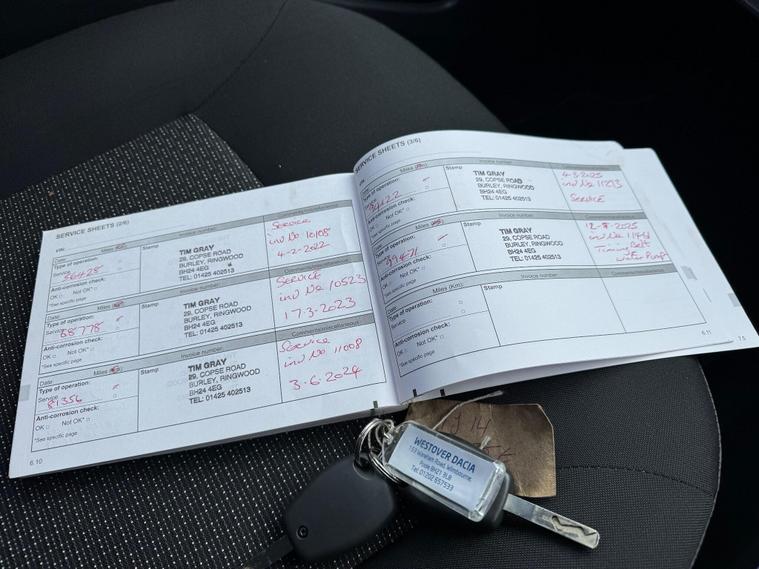 SERVICE SHEETS (2/6)
VIN:
Date: Miles (Km): Invoice number:
Type of operation: Stamp
Service
56428
Anti-corrosion check:
OK Not OK*
*See specific page
TIM GRAY
29, COPSE ROAD
BURLEY, RINGWOOD
BH24 4EG
TEL: 01425 402513
Service
inv No 10108
4-2-2022
Date: Miles (Km): Invoice number: Comments/miscellaneous
Type of operation: Stamp
Service
68778
Anti-corrosion check:
OK Not OK*
*See specific page
TIM GRAY
29, COPSE ROAD
BURLEY, RINGWOOD
BH24 4EG
TEL: 01425 402513
SERVICE
inv No 10523
17.3-2023
Date: Miles (Km): Invoice number: Comments/miscellaneous
Type of operation: Stamp
Service
81356
Anti-corrosion check:
OK Not OK*
*See specific page
TIM GRAY
29, COPSE ROAD
BURLEY, RINGWOOD
BH24 4EG
TEL: 01425 402513
Service
inv No 11008
3.6.2024
6.10
SERVICE SHEETS (3/6)
VIN:
Miles (Km): Invoice number
Type of operation: Stamp
Anti-corrosion check:
OK Not OK*
*See specific page
TIM GRAY
29, COPSE ROAD
BURLEY, RINGWOOD
BH24 4EG
TEL: 01425 402513
4-3-2025
inv No 11213
Service
Miles (Km): Invoice number
Type of operation: Stamp
Anti-corrosion check:
OK Not OK*
*See specific page
TIM GRAY
29, COPSE ROAD
BURLEY, RINGWOOD
BH24 4EG
TEL: 01425 402513
2025
Timing Belt
water Pump
Date: Miles (Km): Invoice number:
Type of operation: Stamp
Service
Anti-corrosion check:
OK Not OK*
*See specific page
6.11
7.5
WESTOVER DACIA
Wimborne
Tel: 01202 657533